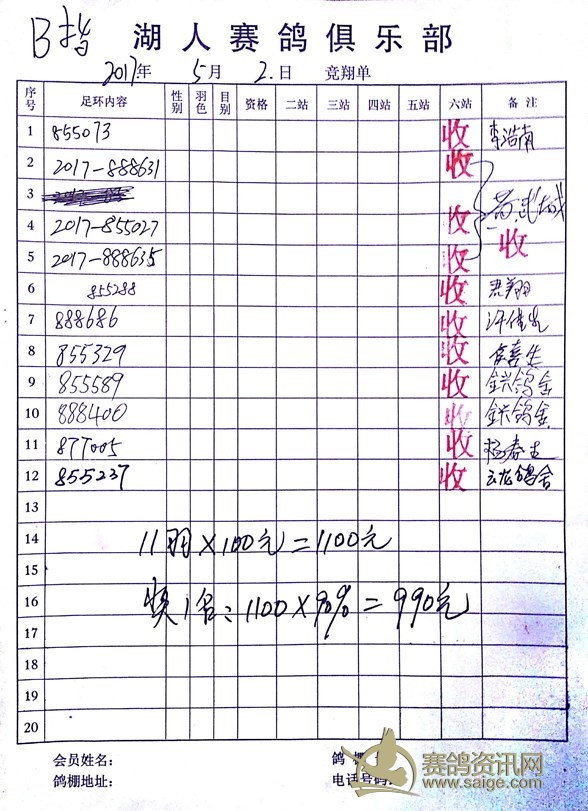 B指
湖人赛鸽俱乐部
2017年 5月 2.日 竞翔单
序号 足环内容 性别 羽色 目别 资格 二站 三站 四站 五站 六站 备注
1 855073 收 李浩南
2 2017-888631 收
3
4 2017-855027 收
收
5 2017-888635 收
6 855288 收 君翔
7 888686 收
8 855329 收
9 855589 收 鸽舍
10 888400 收 鸽舍
11 877005 收 杨春生
12 855237 收 云龙鸽舍
13
14 11羽×100元=1100元
15
16 奖1名：1100×90%=990元
17
18
19
20
会员姓名：
鸽棚
鸽棚地址：
电话号码：
赛鸽资讯网
www.saige.com